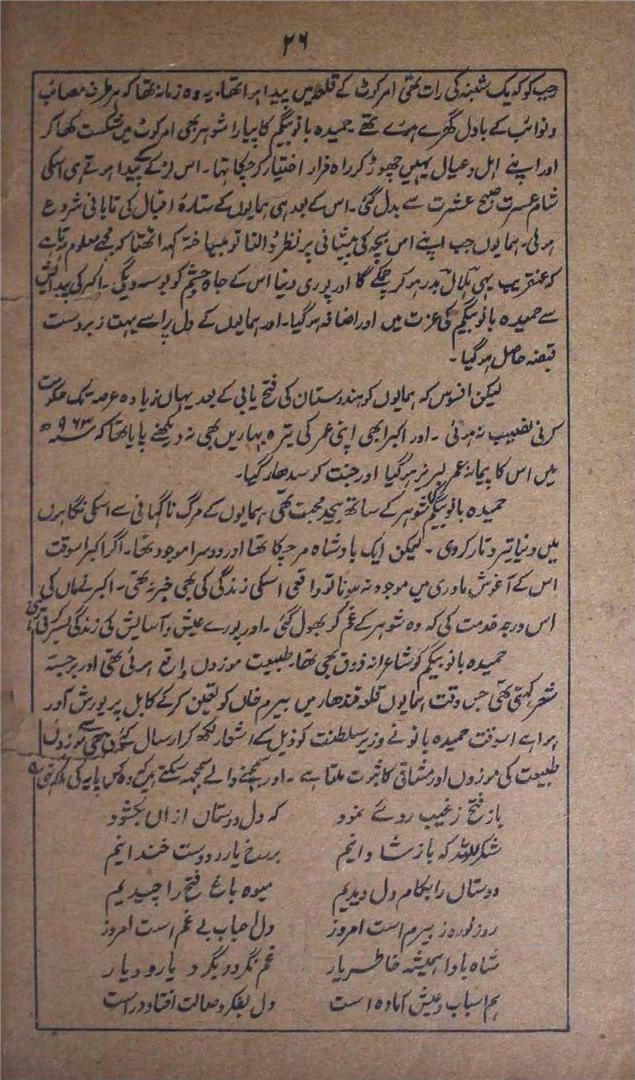 ۲۶
جب کو کہ یک شنبہ کی رات تھی امرکوٹ کے قلعہ میں پیدا ہوا تھا۔ یہ وہ زمانہ تھا کہ ہر طرف مصائب
و نوائب کے بادل گھرے ہوئے تھے حمیدہ بانو بیگم کا پیارا شوہر بھی امرکوٹ میں شکست کھا کر
اور اپنے اہل و عیال یہیں چھوڑ کر راہ فرار اختیار کر چکا تھا۔ اس لڑکے کے پیدا ہوتے ہی اسکی
شام عسرت صبح عشرت سے بدل گئی۔ اس کے بعد ہی ہمایوں کے ستارۂ اقبال کی تابانی شروع
ہوئی۔ ہمایوں جب اپنے اس بچہ کی پیشانی پر نظر ڈالتا تو بیساختہ کہہ اٹھتا کہ مجھے معلوم ہوتا ہے
کہ عنقریب یہی ہلال بدر ہو کر چمکے گا اور پوری دنیا اس کے جاہ و حشم کو بوسہ دیگی۔ اکبر کی پیدائش
سے حمیدہ بانو بیگم کی عزت میں اور اضافہ ہو گیا۔ اور ہمایوں کے دل پر اسے بہت زبردست
قبضہ حاصل ہو گیا۔
لیکن افسوس کہ ہمایوں کو ہندوستان کی فتح یابی کے بعد یہاں زیادہ عرصہ تک حکومت
کرنی نصیب نہ ہوئی۔ اور اکبر ابھی اپنی عمر کی تیرہ بہاریں بھی نہ دیکھنے پایا تھا کہ سنہ ۹۶۳ھ
میں اس کا پیمانۂ عمر لبریز ہو گیا اور جنت کو سدھار گیا۔
حمیدہ بانو بیگم کو شوہر کے ساتھ بیحد محبت تھی۔ ہمایوں کے مرگ ناگہانی سے اسکی نگاہوں
میں دنیا تیرہ و تار کر دی۔ لیکن ایک بادشاہ مر چکا تھا اور دوسرا موجود تھا۔ اگر اکبر اسوقت
اس کے آغوش مادری میں موجود نہ ہوتا تو واقعی اسکی زندگی کی بھی خبر نہ تھی۔ اکبر نے ماں کی
اس درجہ خدمت کی کہ وہ شوہر کے غم کو بھول گئی۔ اور پورے عیش و آسایش کی زندگی بسر کرتی رہی
حمیدہ بانو بیگم کو شاعرانہ ذوق بھی تھا طبیعت موزوں واقع ہوئی تھی اور برجستہ
شعر کہتی تھی جس وقت ہمایوں قلعہ قندھار میں بیرم خاں کو تعین کر کے کابل پر یورش آور
ہوا ہے اسوقت حمیدہ بانو نے وزیر سلطنت کو ذیل کے اشعار لکھ کر ارسال کئے جس سے موزوں
طبیعت کی موزوں اور مشاقی کا ثبوت ملتا ہے۔ اور سمجھنے والے سمجھ سکتے ہیں کہ وہ کس پایہ کی
باز فتح ز غیب روئے نمود کہ دل دوستاں ازاں بکشود
شکر للہ کہ باز شادانیم بر رخ یار و دوست خندانیم
دوستاں را بکام دل دیدیم میوہ باغ فتح را چیدیم
روز نوروز بیرم است امروز دل احباب بے غم است امروز
شاد بادا ہمیشہ خاطر یار غم نگردد بگرد یار و دیار
ہم اسباب عیش آمادہ است دل بفکر وصالت افتادہ است